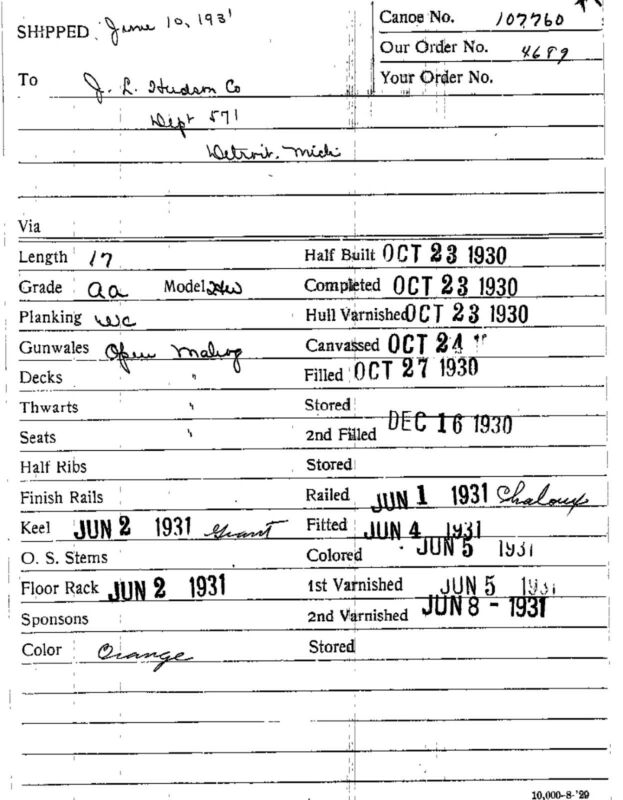 SHIPPED June 10, 1931
Canoe No. 107760
Our Order No. 4689
To J. L. Hudson Co
Your Order No.
Dept 571
Detroit, Mich
Via
Length 17 Half Built OCT 23 1930
Grade aa Model HW Completed OCT 23 1930
Planking wc Hull Varnished OCT 23 1930
Gunwales Open Mahog Canvassed OCT 24
Decks " Filled OCT 27 1930
Thwarts " Stored
Seats " 2nd Filled DEC 16 1930
Half Ribs Stored
Finish Rails Railed JUN 1 1931 Chaloux
Keel JUN 2 1931 Grant Fitted JUN 4 1931
O. S. Stems Colored JUN 5 1931
Floor Rack JUN 2 1931 1st Varnished JUN 5 1931
Sponsons 2nd Varnished JUN 8 - 1931
Color Orange Stored
10,000-8-'29